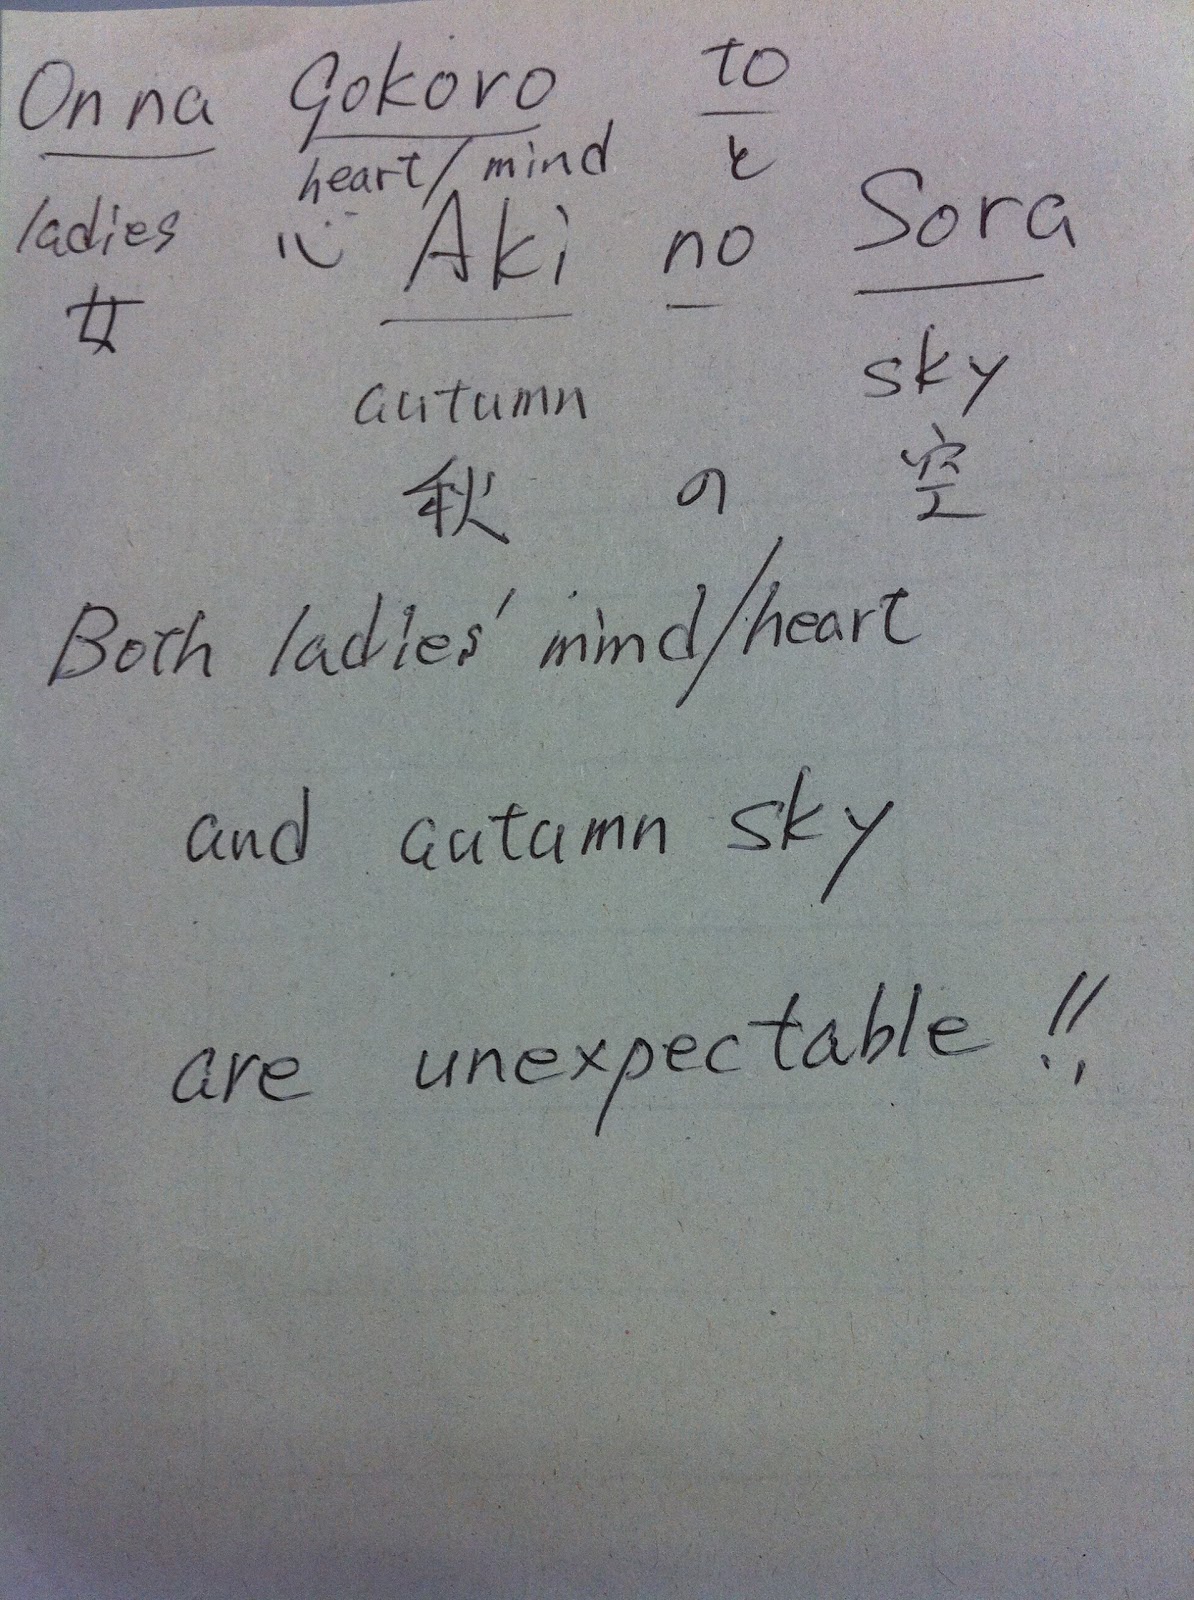 Onna Gokoro to
heart/mind と
ladies 心 Aki no Sora
女
autumn sky
秋 の 空
Both ladies' mind/heart
and autamn sky
are unexpectable!!